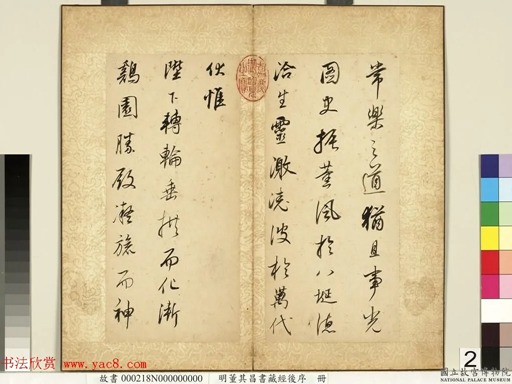 常樂之道猶且事光
圖史振薰風於八埏德
洽生靈激澆波於萬代
伏惟
陛下轉輪垂拱而化漸
鷄園勝殿凝旒而神
書法欣赏 www.yac8.com
故書 000218N000000000 明董其昌書藏經後序 冊
2
國立故宮博物院
NATIONAL PALACE MUSEUM